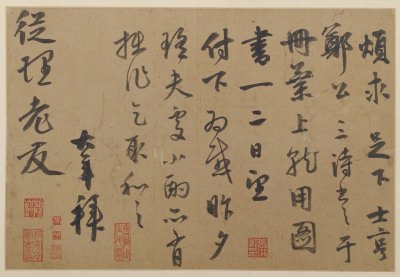 煩求足下士亨
鄭公三詩書于
冊葉上能用圖
書一二日望
付下為感昨夕
強夫处小酌亦有
拙作乞取和之
大年拜
從理老友